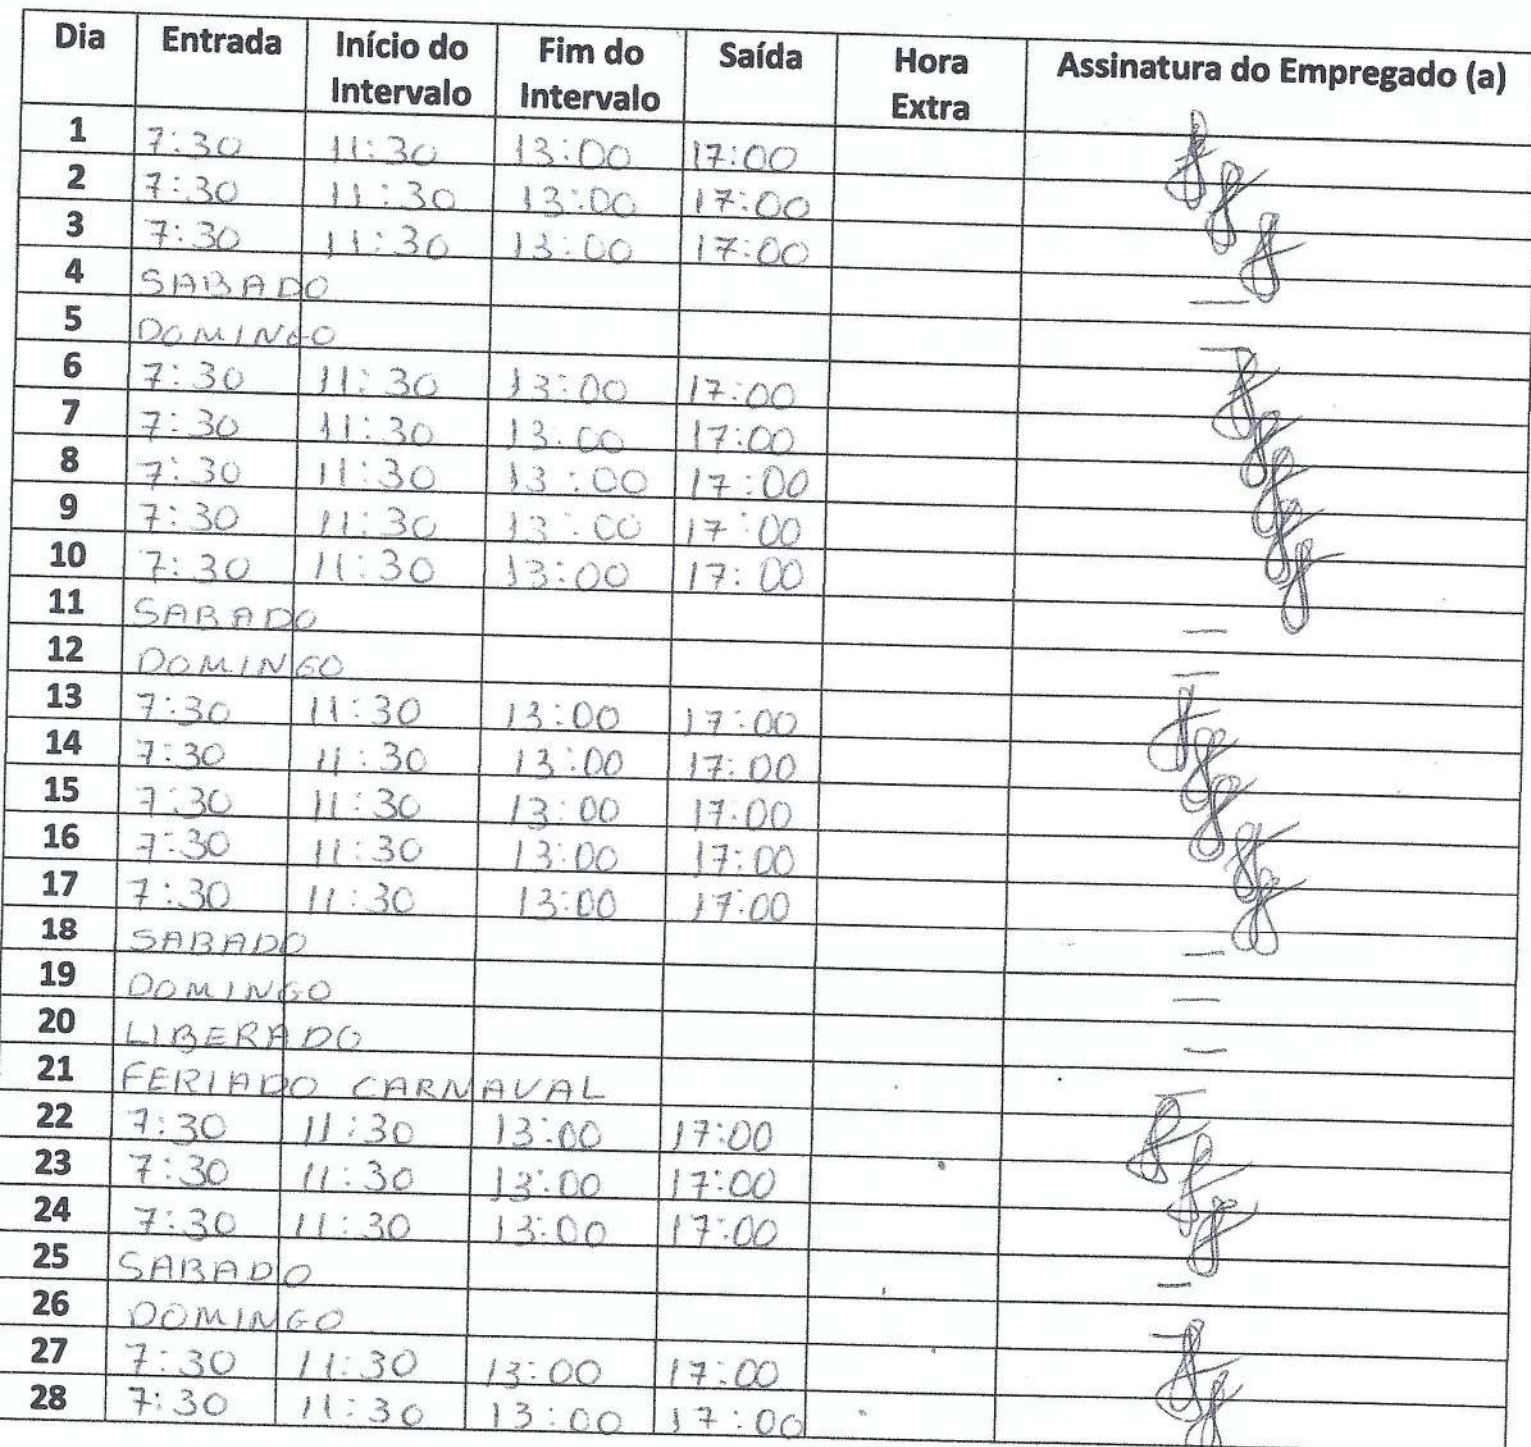 Dia Entrada Início do Intervalo Fim do Intervalo Saída Hora Extra Assinatura do Empregado (a)
1 7:30 11:30 13:00 17:00
2 7:30 11:30 13:00 17:00
3 7:30 11:30 13:00 17:00
4 SABADO
5 DOMINGO
6 7:30 11:30 13:00 17:00
7 7:30 11:30 13:00 17:00
8 7:30 11:30 13:00 17:00
9 7:30 11:30 13:00 17:00
10 7:30 11:30 13:00 17:00
11 SABADO
12 DOMINGO
13 7:30 11:30 13:00 17:00
14 7:30 11:30 13:00 17:00
15 7:30 11:30 13:00 17:00
16 7:30 11:30 13:00 17:00
17 7:30 11:30 13:00 17:00
18 SABADO
19 DOMINGO
20 LIBERADO
21 FERIADO CARNAVAL
22 7:30 11:30 13:00 17:00
23 7:30 11:30 13:00 17:00
24 7:30 11:30 13:00 17:00
25 SABADO
26 DOMINGO
27 7:30 11:30 13:00 17:00
28 7:30 11:30 13:00 17:00